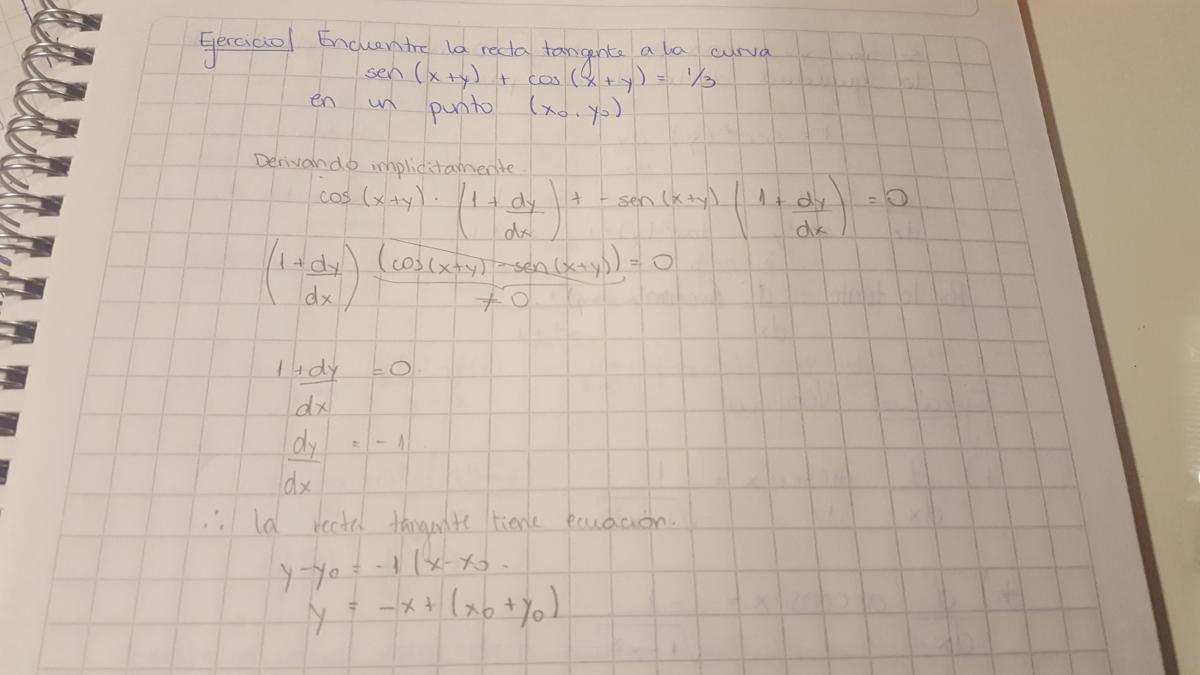 Ejercicio| Encuentre la recta tangente a la curva
sen(x+y) + cos(x+y) = 1/3
en un punto (x₀, y₀)
Derivando implicitamente.
cos(x+y) · (1 + dy/dx) + - sen(x+y) (1 + dy/dx) = 0
(1 + dy/dx) (cos(x+y) - sen(x+y)) = 0
≠ 0
1 + dy/dx = 0
dy/dx = -1
∴ la recta tangente tiene ecuación.
y - y₀ = -1 (x - x₀.
y = -x + (x₀ + y₀)